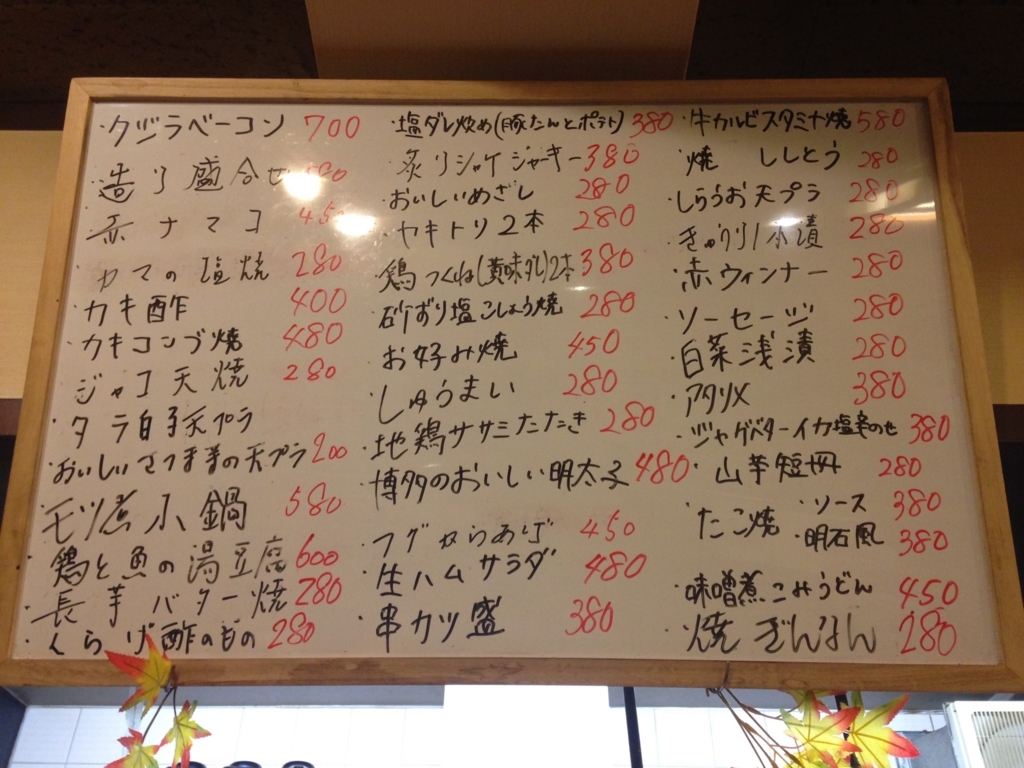 ・クジラベーコン 700
・造り盛合せ
・赤ナマコ 450
・カマの塩焼 280
・カキ酢 400
・カキコンブ焼 480
・ジャコ天焼 280
・タラ白子天プラ
・おいしいさつま芋の天プラ 200
・モツ煮小鍋 580
・鶏と魚の湯豆腐 600
・長芋バター焼 280
・くらげ酢のもの 280
・塩ダレ炒め(豚たんとポテト) 380
・炙りシャケジャーキー 380
・おいしいめざし 280
・ヤキトリ2本 280
・鶏つくね(黄味ダレ)2本 380
・砂ずり塩こしょう焼 280
・お好み焼 450
・しゅうまい 280
・地鶏ササミたたき 280
・博多のおいしい明太子 480
・フグからあげ 450
・生ハムサラダ 480
・串カツ盛 380
・牛カルビスタミナ焼 580
・焼 ししとう 280
・しらうお天プラ 280
・きゅうり1本漬 280
・赤ウィンナー 280
・ソーセージ 280
・白菜浅漬 280
・アタリメ 380
・ジャガバターイカ塩辛のせ 380
・山芋短冊 280
・たこ焼 ・ソース 380
・明石風 380
・味噌煮こみうどん 450
・焼ぎんなん 280